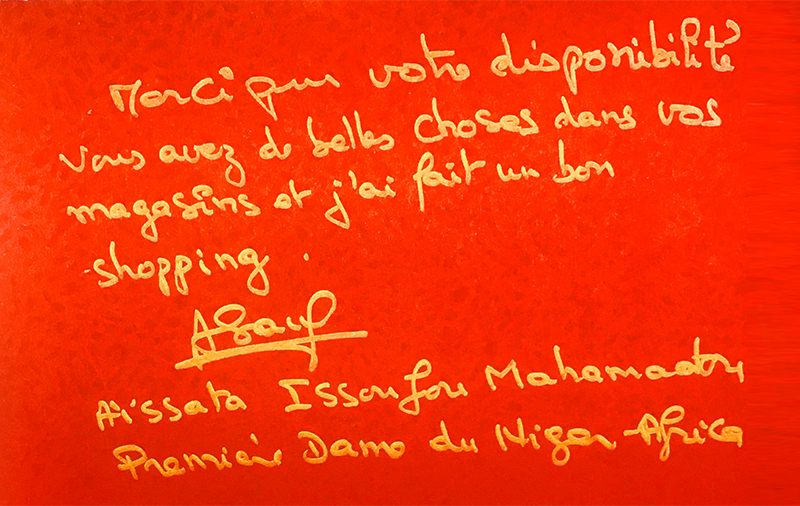 Merci pour votre disponibilité
vous avez de belles choses dans vos
magasins et j'ai fait un bon
shopping.
Aïssata Issoufou Mahamadou
Première Dame du Niger-Africa